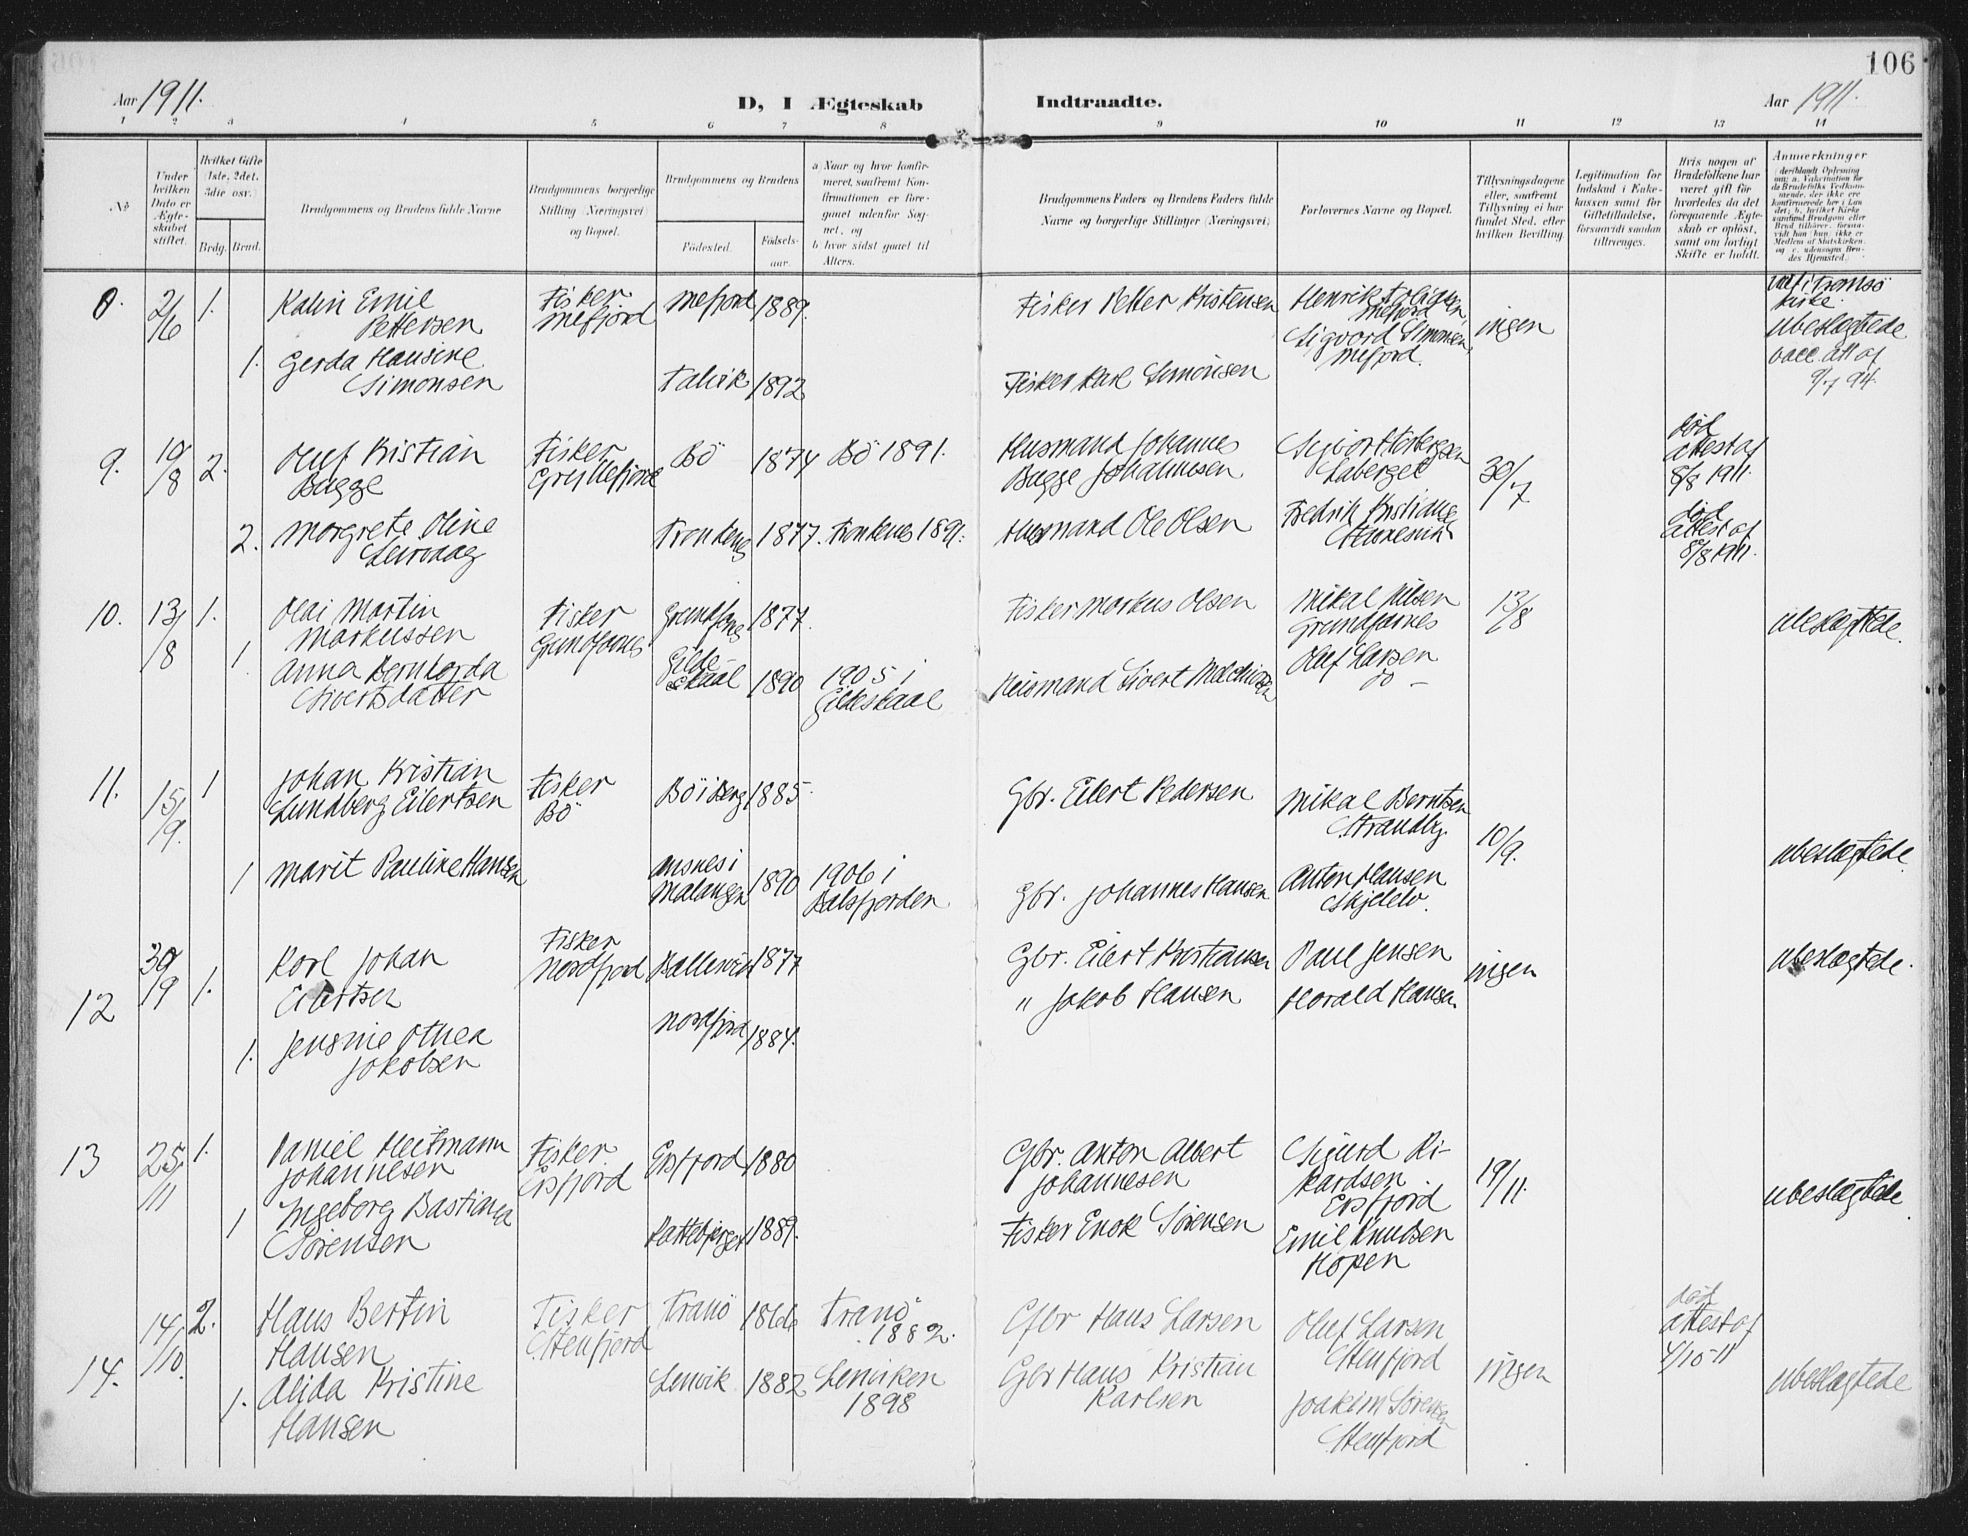 106
Aar 1911.
D, I Ægteskab Indtraadte.
Aar 1911.
1 2 3 4 5 6 7 8 9 10 11 12 13 14
No
Under hvilken Dato er Ægteskabet stiftet.
Hvilket Gifte (1ste, 2det, 3die osv.)
Brdg. Brud.
Brudgommens og Brudens fulde Navne
Brudgommens borgerlige Stilling (Næringsvei) og Bopæl.
Brudgommens og Brudens
Fødested. Fødselsaar.
a Naar og hvor konfirmeret, saafremt Konfirmationen er foregaaet udenfor Sognet, og
b hvor sidst gaaet til Alters.
Brudgommens Faders og Brudens Faders fulde Navne og borgerlige Stillinger (Næringsvei)
Forlovernes Navne og Bopæl.
Tillysningsdagene eller, saafremt Tillysning ei har fundet Sted, efter hvilken Bevilling.
Legitimation for Indskud i Enkekassen samt for Giftetilladelse, forsaavidt saadan tiltrænges.
Hvis nogen af Brudefolkene har været gift før hvorledes da det foregaaende Ægteskab er opløst, samt om lovligt Skifte er holdt.
Anmærkninger
8. 2/6 1. Kalin Emil Pettersen Fisker Mefjord Mefjord 1889. Fisker Petter Kristensen Henrik Mefjord ingen Kirke. ubeslægtede
1. Gerda Hansine Simonsen Talvik 1892 Fisker Karl Simonsen Sigvord Simonsen, Mefjord. vacc. att af 9/7 94
9. 10/8 2. Oluf Kristian Bagge Fisker Gryllefjord Bö 1874 Bö 1891. Husmand Johannes Bagge Johannesen Laberget 30/7 död attest af 8/8 1911.
2. Margrete Oline Leirvaag Trondenes 1877. Trondenes 1891. Husmand Ole Olsen Fedrik Kristianse död attest af 8/8 1911.
10. 13/8 1. Olai Martin Markussen Fisker Grundfarnes Grundfarnes 1877. Fisker Markus Olsen Mikal Nilsen Grundfarnes 13/8 ubeslægtede.
1. Anna Bernhorda Sivertsdatter Gildeskaal 1890 1905 i Gildeskaal Husmand Sivert Melchiorsen Oluf Larsen do –
11. 15/9. 1 Johan Kristian Lundberg Eilertsen Fisker Bö Bö i Berg 1885. Gbr. Eilert Pedersen Mikal Berntsen Strandby 10/9. ubeslægtede.
1 Marit Pauline Hansen Ansnes i Malangen 1890 1906 i Balsfjorden Gbr. Johannes Hansen Anton Hansen Skjelelv.
12 30/9 1. Karl Johan Eilertsen Fisker Nordfjord Ballesvik 1877 Gbr. Eilert Kristiansen Paul Jensen ingen ubeslægtede.
1. Jensine Othea Jakobsen Nordfjord 1884. " Jakob Hansen Horald Hansen
13 25/11 1. Daniel Heitmann Johannesen Fisker Ersfjord Ersfjord 1880 Gbr. Anton Albert Johannesen Sigurd Rikardsen Ersfjord 19/11. ubeslægtede.
1 Ingeborg Bastiana Sørensen Kattebjerget 1889. Fisker Enok Sørensen Emil Knudsen Hopen
14. 14/10. 2. Hans Bertin Hansen Fisker Stenfjord Tranö 1866 Tranö 1882. Gbr Hans Larsen Oluf Larsen Stenfjord ingen död attest af 4/10-11 ubeslægtede
1. Alida Kristine Hansen Lenvik 1882 Lenviken 1898 Gbr Hans Kristian Karlsen Joakim Sørensen Stenfjord